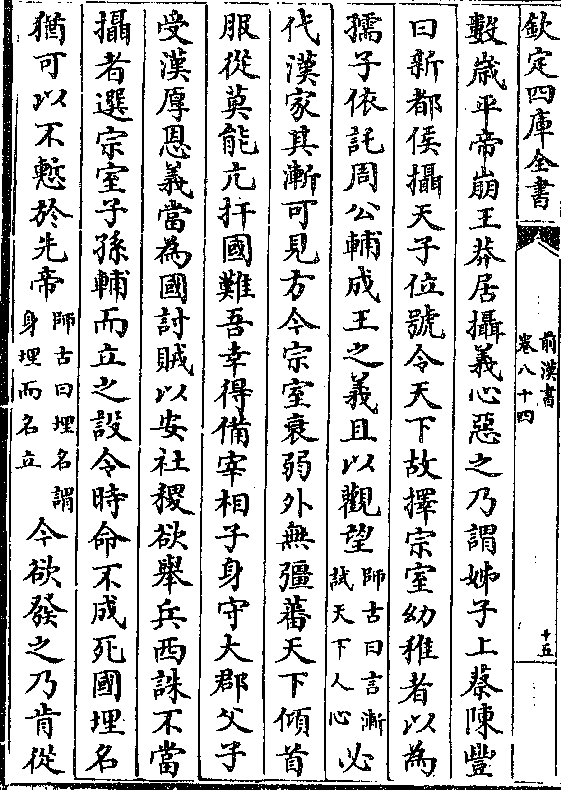 欽定四庫全書
前漢書
卷八十四
十五
數歲平帝崩王莽居攝義心惡之乃謂姊子上蔡陳豐
曰新都侯攝天子位號令天下故擇宗室幼稚者以為
孺子依託周公輔成王之義且以觀望師古曰言漸試天下人心必
代漢家其漸可見方今宗室衰弱外無彊蕃天下傾首
服從莫能亢扞國難吾幸得備宰相子身守大郡父子
受漢厚恩義當為國討賊以安社稷欲舉兵西誅不當
攝者選宗室子孫輔而立之設令時命不成死國埋名
猶可以不慙於先帝師古曰埋名謂身埋而名立今欲發之乃肯從